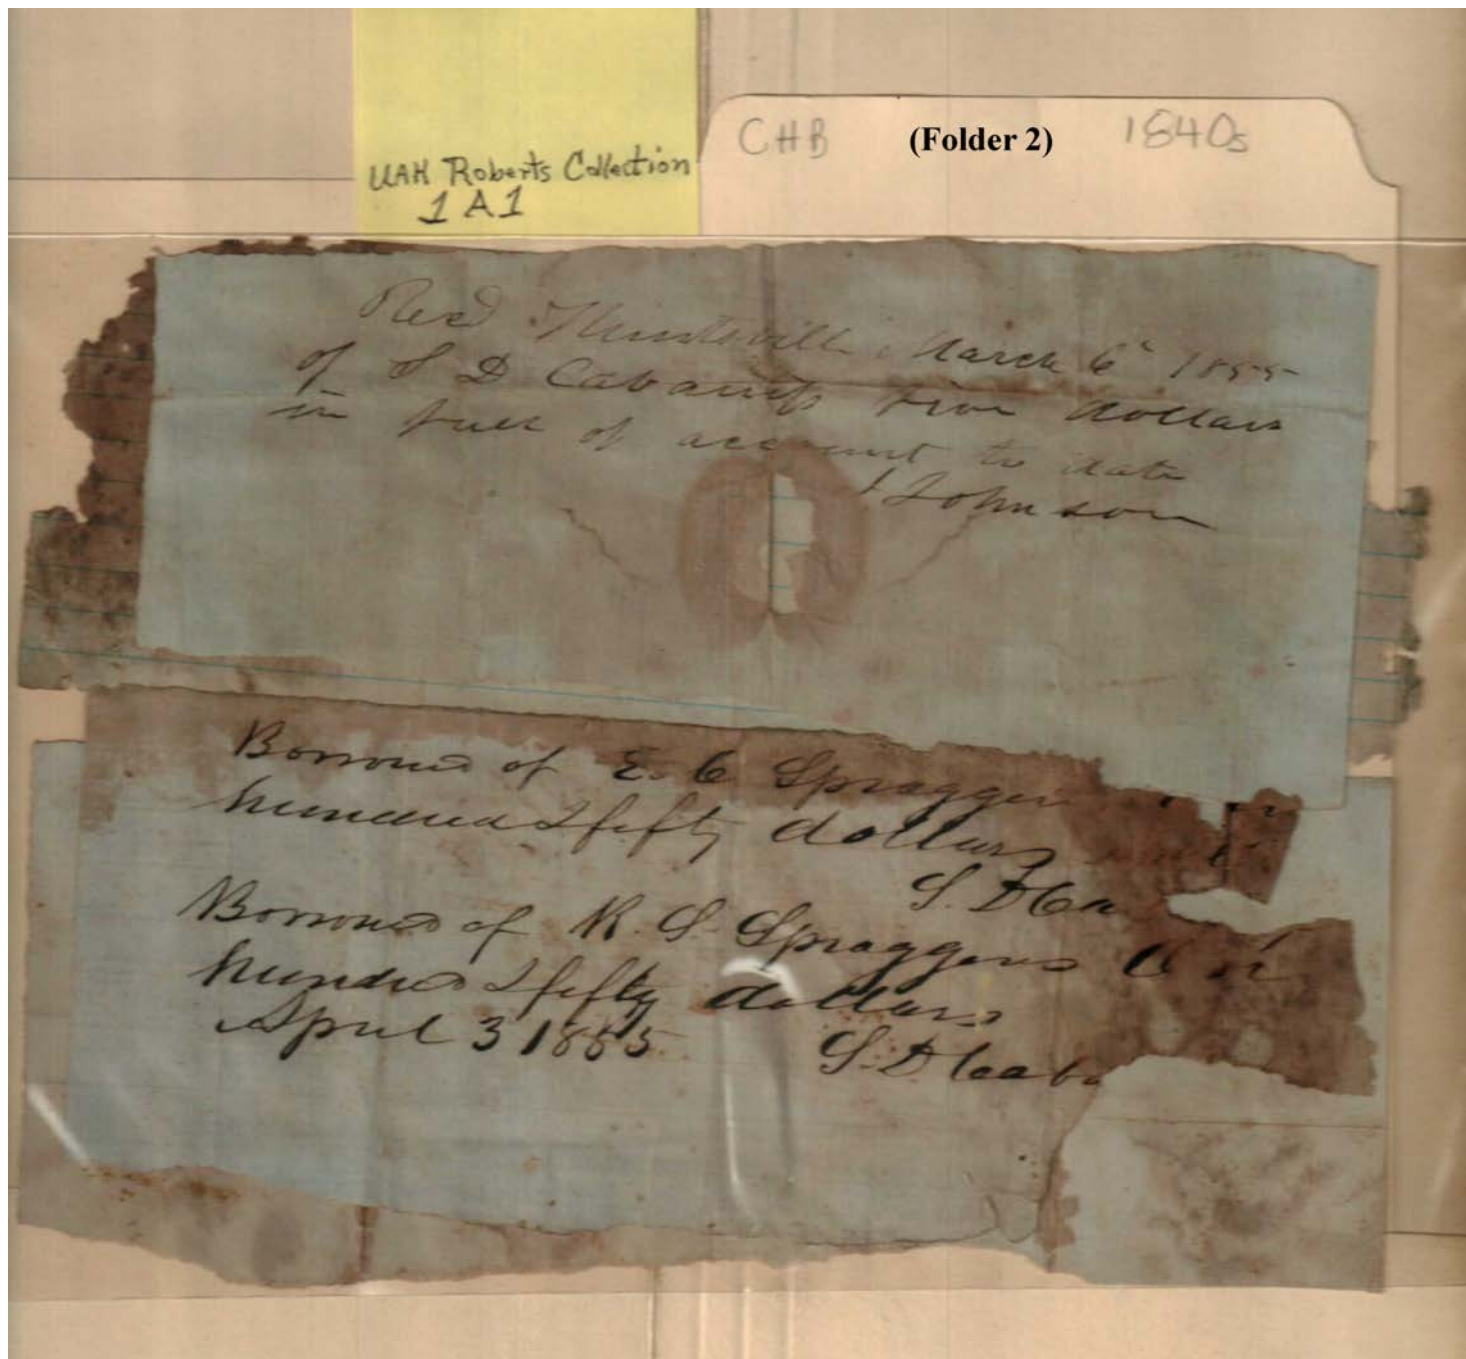 UAH Roberts Collection
1A1
CHB (Folder 2) 1840s
Recd Huntsville March 6th 1855
of S D Cabaniss Five dollars
in full of account to date
Johnson
Borrowed of E. C Spraggins
hundred & fifty dollars
S. D Ca
Borrowed of R. S. Spraggins On
hundred & fifty dollars
April 3 1855 S. D Caba